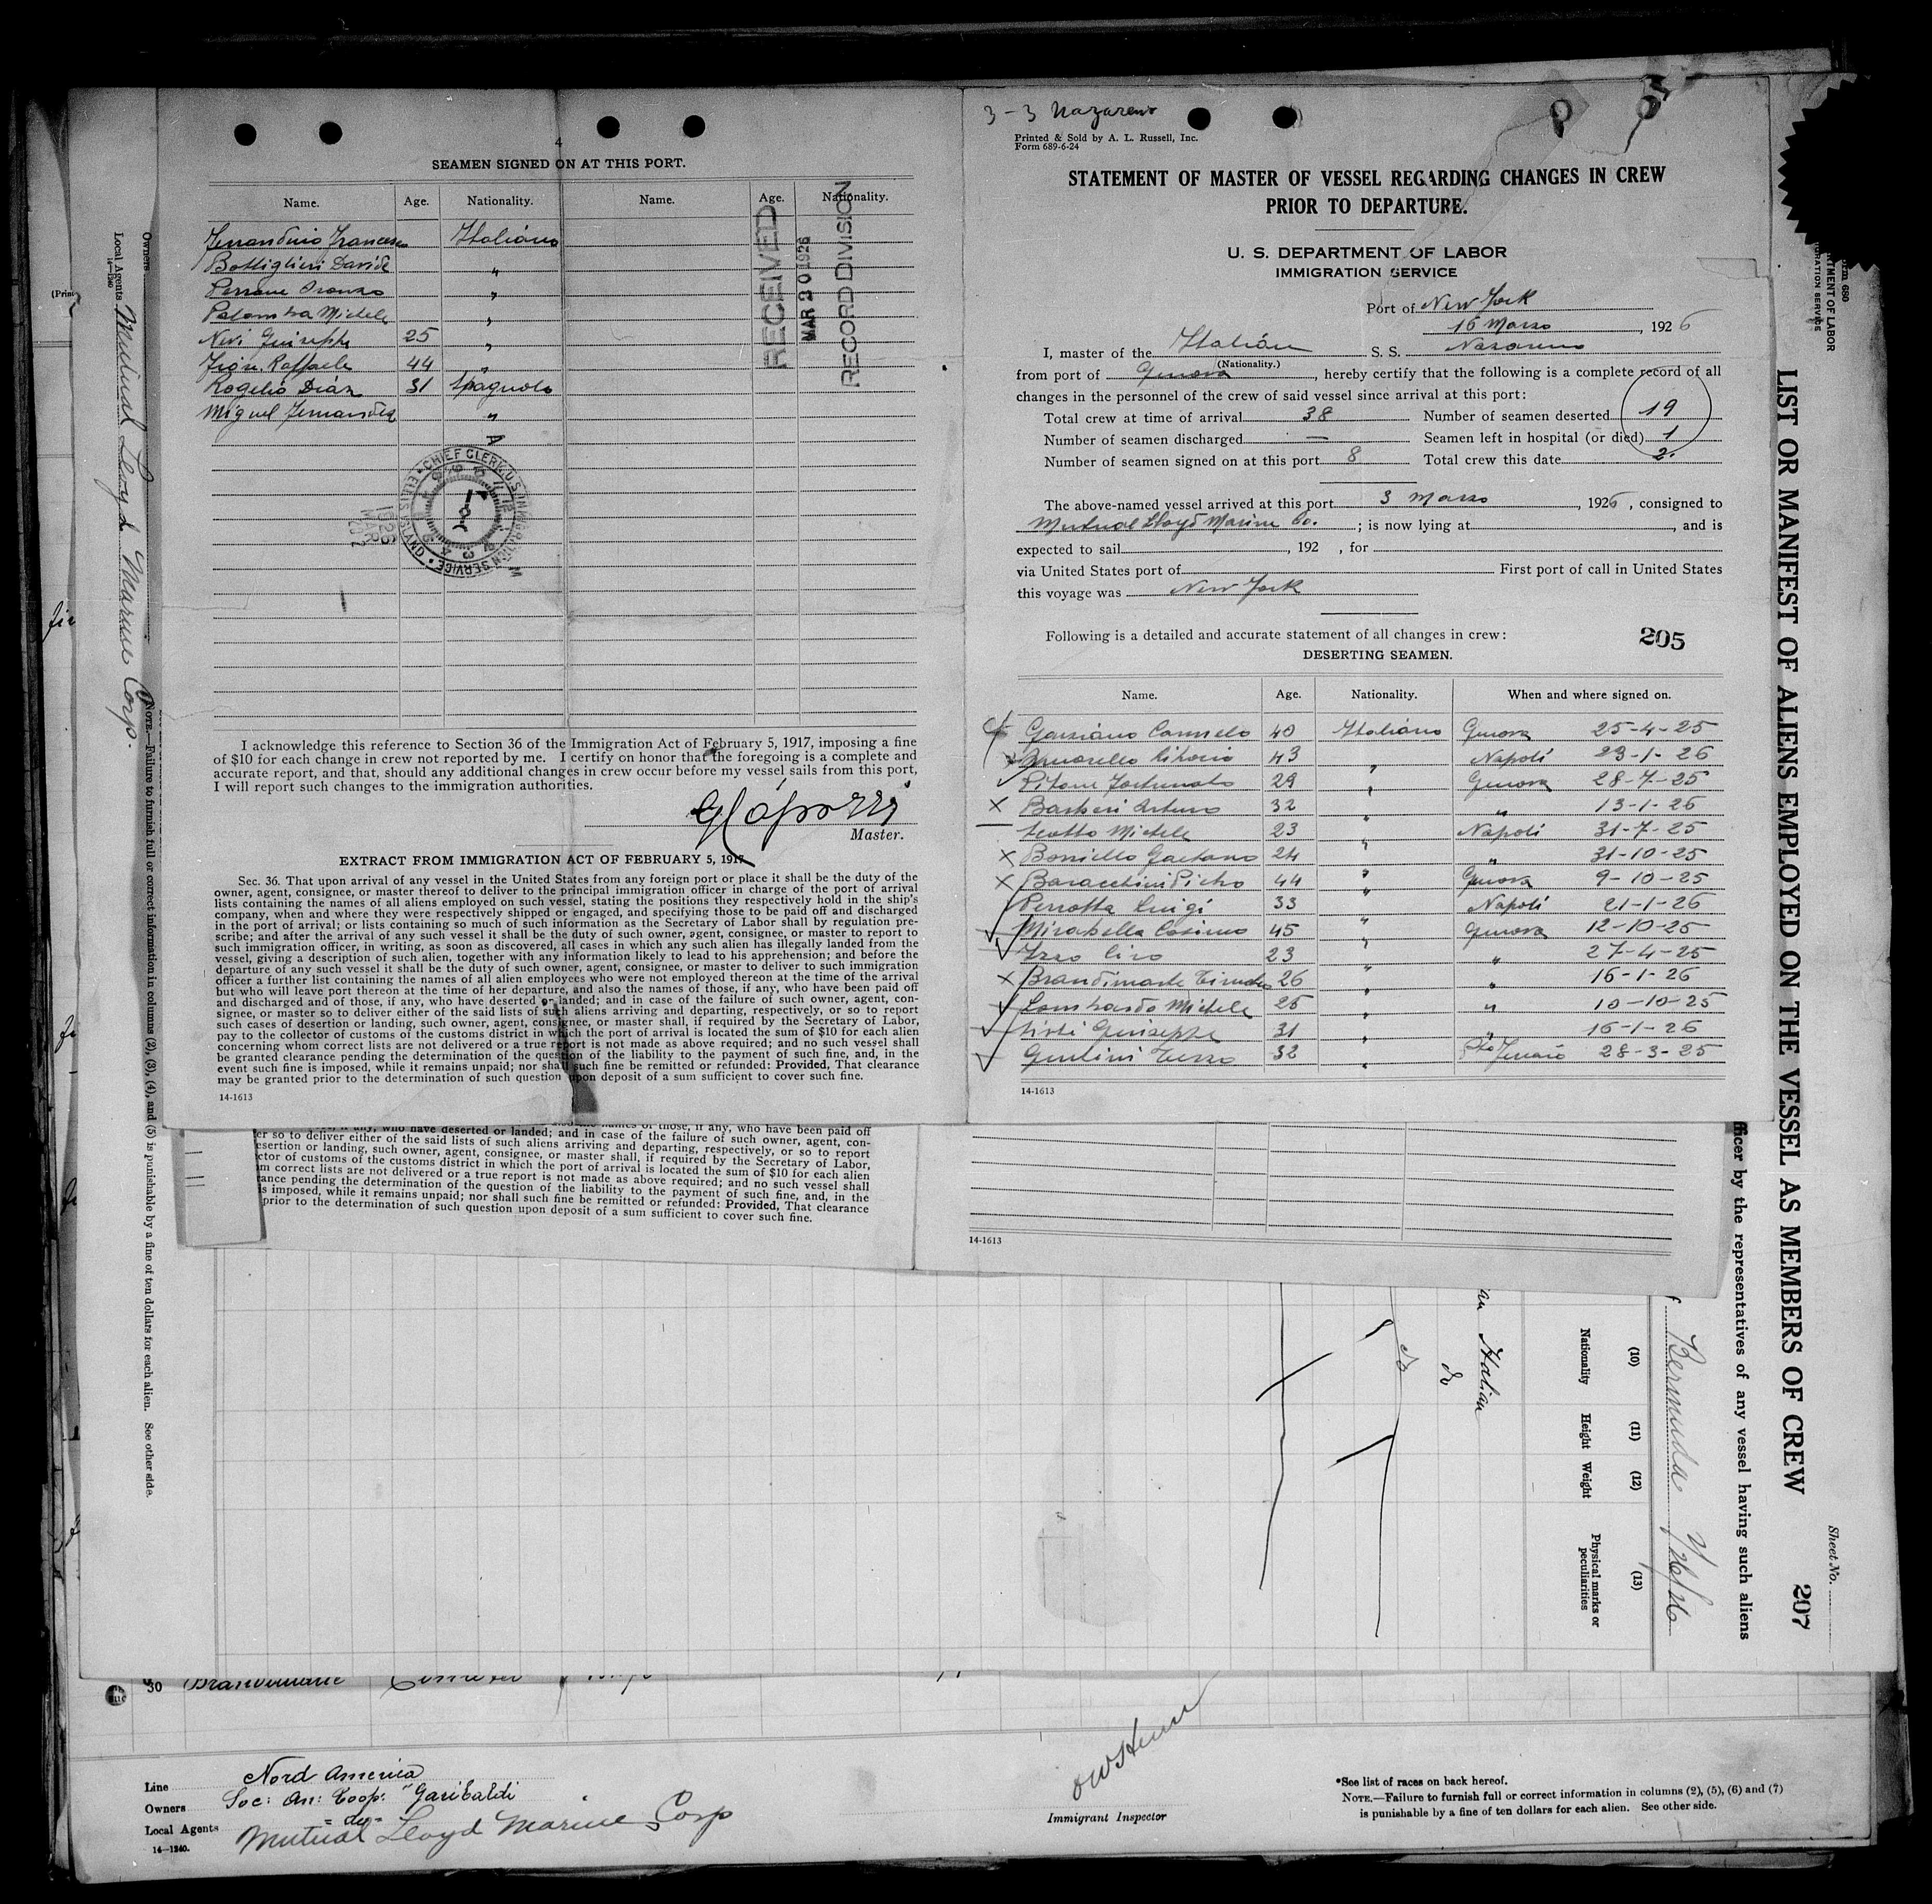 4
SEAMEN SIGNED ON AT THIS PORT.
Name. Age. Nationality. Name. Age. Nationality.
Francesco Italiano
Bottiglieri Davide "
Perrone Oronzo "
Palomba Michele "
Nivi Giuseppe 25 "
Raffaele 44 "
Rogelio Diaz 31 Spagnolo
Miguel Fernandez "
RECEIVED
MAR 20 1926
RECORD DIVISION
CHIEF CLERK U.S. IMMIGRATION SERVICE
ELLIS ISLAND
1926
MAR
I acknowledge this reference to Section 36 of the Immigration Act of February 5, 1917, imposing a fine
of $10 for each change in crew not reported by me. I certify on honor that the foregoing is a complete and
accurate report, and that, should any additional changes in crew occur before my vessel sails from this port,
I will report such changes to the immigration authorities.
Master.
EXTRACT FROM IMMIGRATION ACT OF FEBRUARY 5, 1917
Sec. 36. That upon arrival of any vessel in the United States from any foreign port or place it shall be the duty of the
owner, agent, consignee, or master thereof to deliver to the principal immigration officer in charge of the port of arrival
lists containing the names of all aliens employed on such vessel, stating the positions they respectively hold in the ship's
company, when and where they were respectively shipped or engaged, and specifying those to be paid off and discharged
in the port of arrival; or lists containing so much of such information as the Secretary of Labor shall by regulation pre-
scribe; and after the arrival of any such vessel it shall be the duty of such owner, agent, consignee, or master to report to
such immigration officer, in writing, as soon as discovered, all cases in which any such alien has illegally landed from the
vessel, giving a description of such alien, together with any information likely to lead to his apprehension; and before the
departure of any such vessel it shall be the duty of such owner, agent, consignee, or master to deliver to such immigration
officer a further list containing the names of all alien employees who were not employed thereon at the time of the arrival
but who will leave port thereon at the time of her departure, and also the names of those, if any, who have been paid off
and discharged and of those, if any, who have deserted or landed; and in case of the failure of such owner, agent, con-
signee, or master so to deliver either of the said lists of such aliens arriving and departing, respectively, or so to report
such cases of desertion or landing, such owner, agent, consignee, or master shall, if required by the Secretary of Labor,
pay to the collector of customs of the customs district in which the port of arrival is located the sum of $10 for each alien
concerning whom correct lists are not delivered or a true report is not made as above required; and no such vessel shall
be granted clearance pending the determination of the question of the liability to the payment of such fine, and, in the
event such fine is imposed, while it remains unpaid; nor shall such fine be remitted or refunded: Provided, That clearance
may be granted prior to the determination of such question upon deposit of a sum sufficient to cover such fine.
14-1613
3-3 Nazareno
Printed & Sold by A. L. Russell, Inc.
Form 689-6-24
STATEMENT OF MASTER OF VESSEL REGARDING CHANGES IN CREW
PRIOR TO DEPARTURE.
U. S. DEPARTMENT OF LABOR
IMMIGRATION SERVICE
Port of New York
16 Marzo, 1926
I, master of the Italian S. S. Nazareno
(Nationality.)
from port of Genova, hereby certify that the following is a complete record of all
changes in the personnel of the crew of said vessel since arrival at this port:
Total crew at time of arrival 38 Number of seamen deserted 19
Number of seamen discharged — Seamen left in hospital (or died) 1
Number of seamen signed on at this port 8 Total crew this date 2
The above-named vessel arrived at this port 3 Marzo, 1926, consigned to
Mutual Lloyd Marine Co.; is now lying at , and is
expected to sail , 192 , for
via United States port of First port of call in United States
this voyage was New York
Following is a detailed and accurate statement of all changes in crew:
205
DESERTING SEAMEN.
Name. Age. Nationality. When and where signed on.
Carmelo 40 Italiano Genova 25-4-25
43 " Napoli 23-1-26
Fortunato 29 " Genova 28-7-25
Barbieri Arturo 32 " " 13-1-26
Michele 23 " Napoli 31-7-25
Borriello Gaetano 24 " " 31-10-25
Baracchini Pietro 44 " Genova 9-10-25
Perrotta Luigi 33 " Napoli 21-1-26
Mirabella Cosimo 45 " Genova 12-10-25
Izzo Ciro 23 " " 27-4-25
Brandimarte 26 " " 16-1-26
Lombardo Michele 25 " " 10-10-25
Giuseppe 31 " " 16-1-26
32 " 28-3-25
14-1613
who have deserted or landed; and in case of the failure of such owner, agent, con-
er so to deliver either of the said lists of such aliens arriving and departing, respectively, or so to report
esertion or landing, such owner, agent, consignee, or master shall, if required by the Secretary of Labor,
ctor of customs of the customs district in which the port of arrival is located the sum of $10 for each alien
m correct lists are not delivered or a true report is not made as above required; and no such vessel shall
ance pending the determination of the question of the liability to the payment of such fine, and, in the
s imposed, while it remains unpaid; nor shall such fine be remitted or refunded: Provided, That clearance
prior to the determination of such question upon deposit of a sum sufficient to cover such fine.
14-1613
Owners
Local Agents Mutual Lloyd Marine Corp.
14-1240
NOTE.—Failure to furnish full or correct information in columns (2), (3), (4), and (5) is punishable by a fine of ten dollars for each alien. See other side.
LIST OR MANIFEST OF ALIENS EMPLOYED ON THE VESSEL AS MEMBERS OF CREW
207
Sheet No.
fficer by the representatives of any vessel having such aliens
Bermuda
(10) (11) (12) (13)
Nationality Height Weight Physical marks or
peculiarities
Italian
do
do
30
Line Nord America
Owners Soc: An: Coop: "Garibaldi
Local Agents Mutual Lloyd Marine Corp
14-1240.
Immigrant Inspector
*See list of races on back hereof.
NOTE.—Failure to furnish full or correct information in columns (2), (5), (6) and (7)
is punishable by a fine of ten dollars for each alien. See other side.